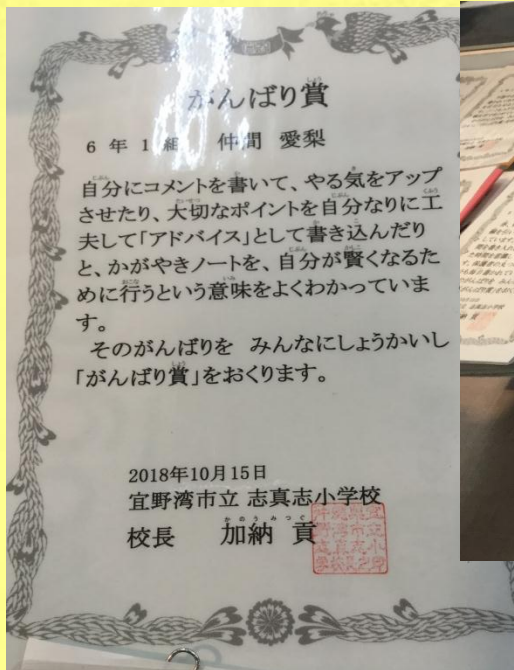 がんばり賞
6年1組 仲間 愛梨
自分にコメントを書いて、やる気をアップ
させたり、大切なポイントを自分なりに工
夫して「アドバイス」として書き込んだり
と、かがやきノートを、自分が賢くなるた
めに行うという意味をよくわかっていま
す。
そのがんばりを みんなにしょうかいし
「がんばり賞」をおくります。
2018年10月15日
宜野湾市立 志真志小学校
校長 加納 貢